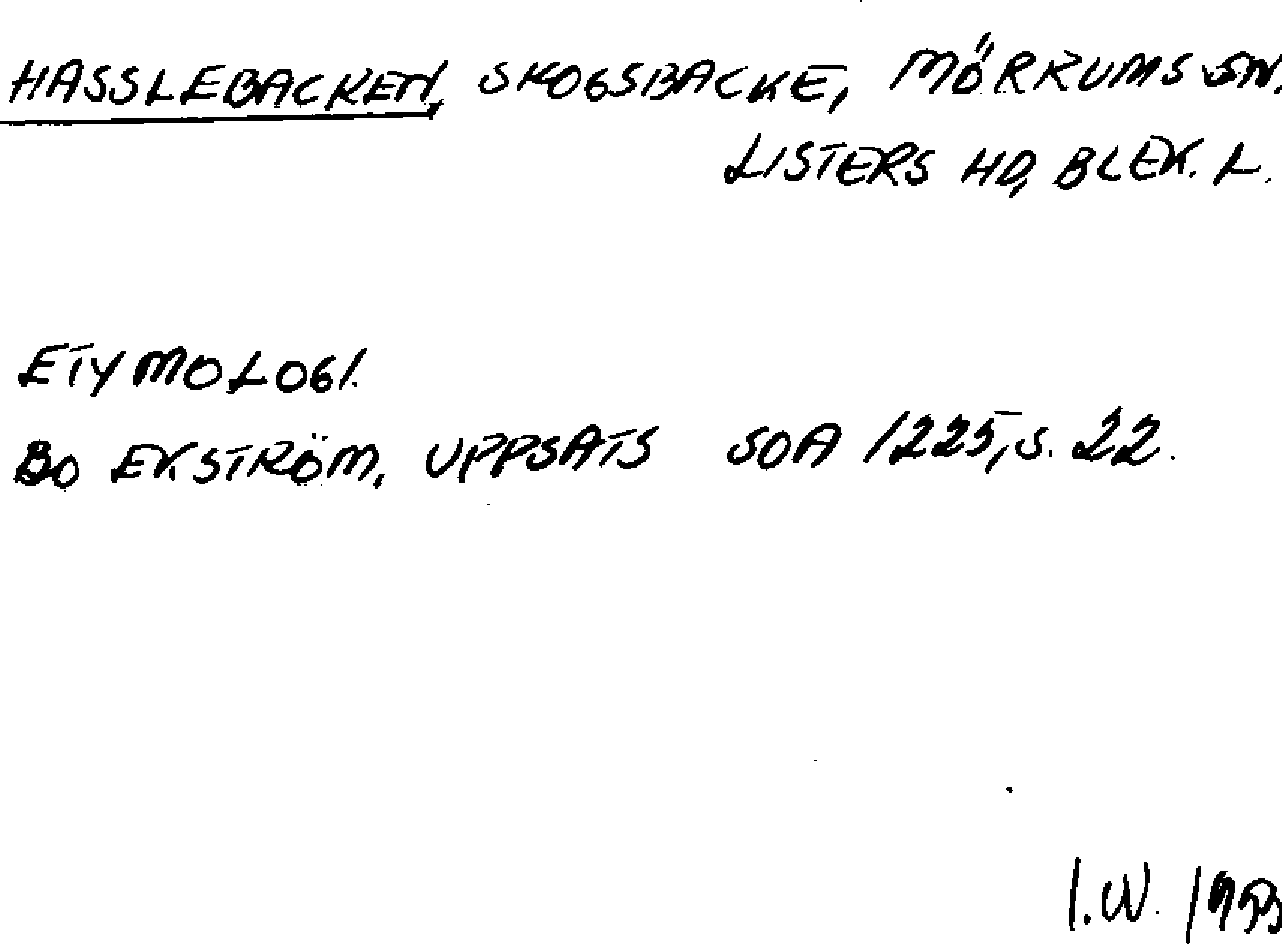 HASSLEBACKEN, SKOGSBACKE, MÖRRUMS SN,
LISTERS HD, BLEK. L.
ETYMOLOGI.
BO EKSTRÖM, UPPSATS SOA 1225, S. 22.
I.W.